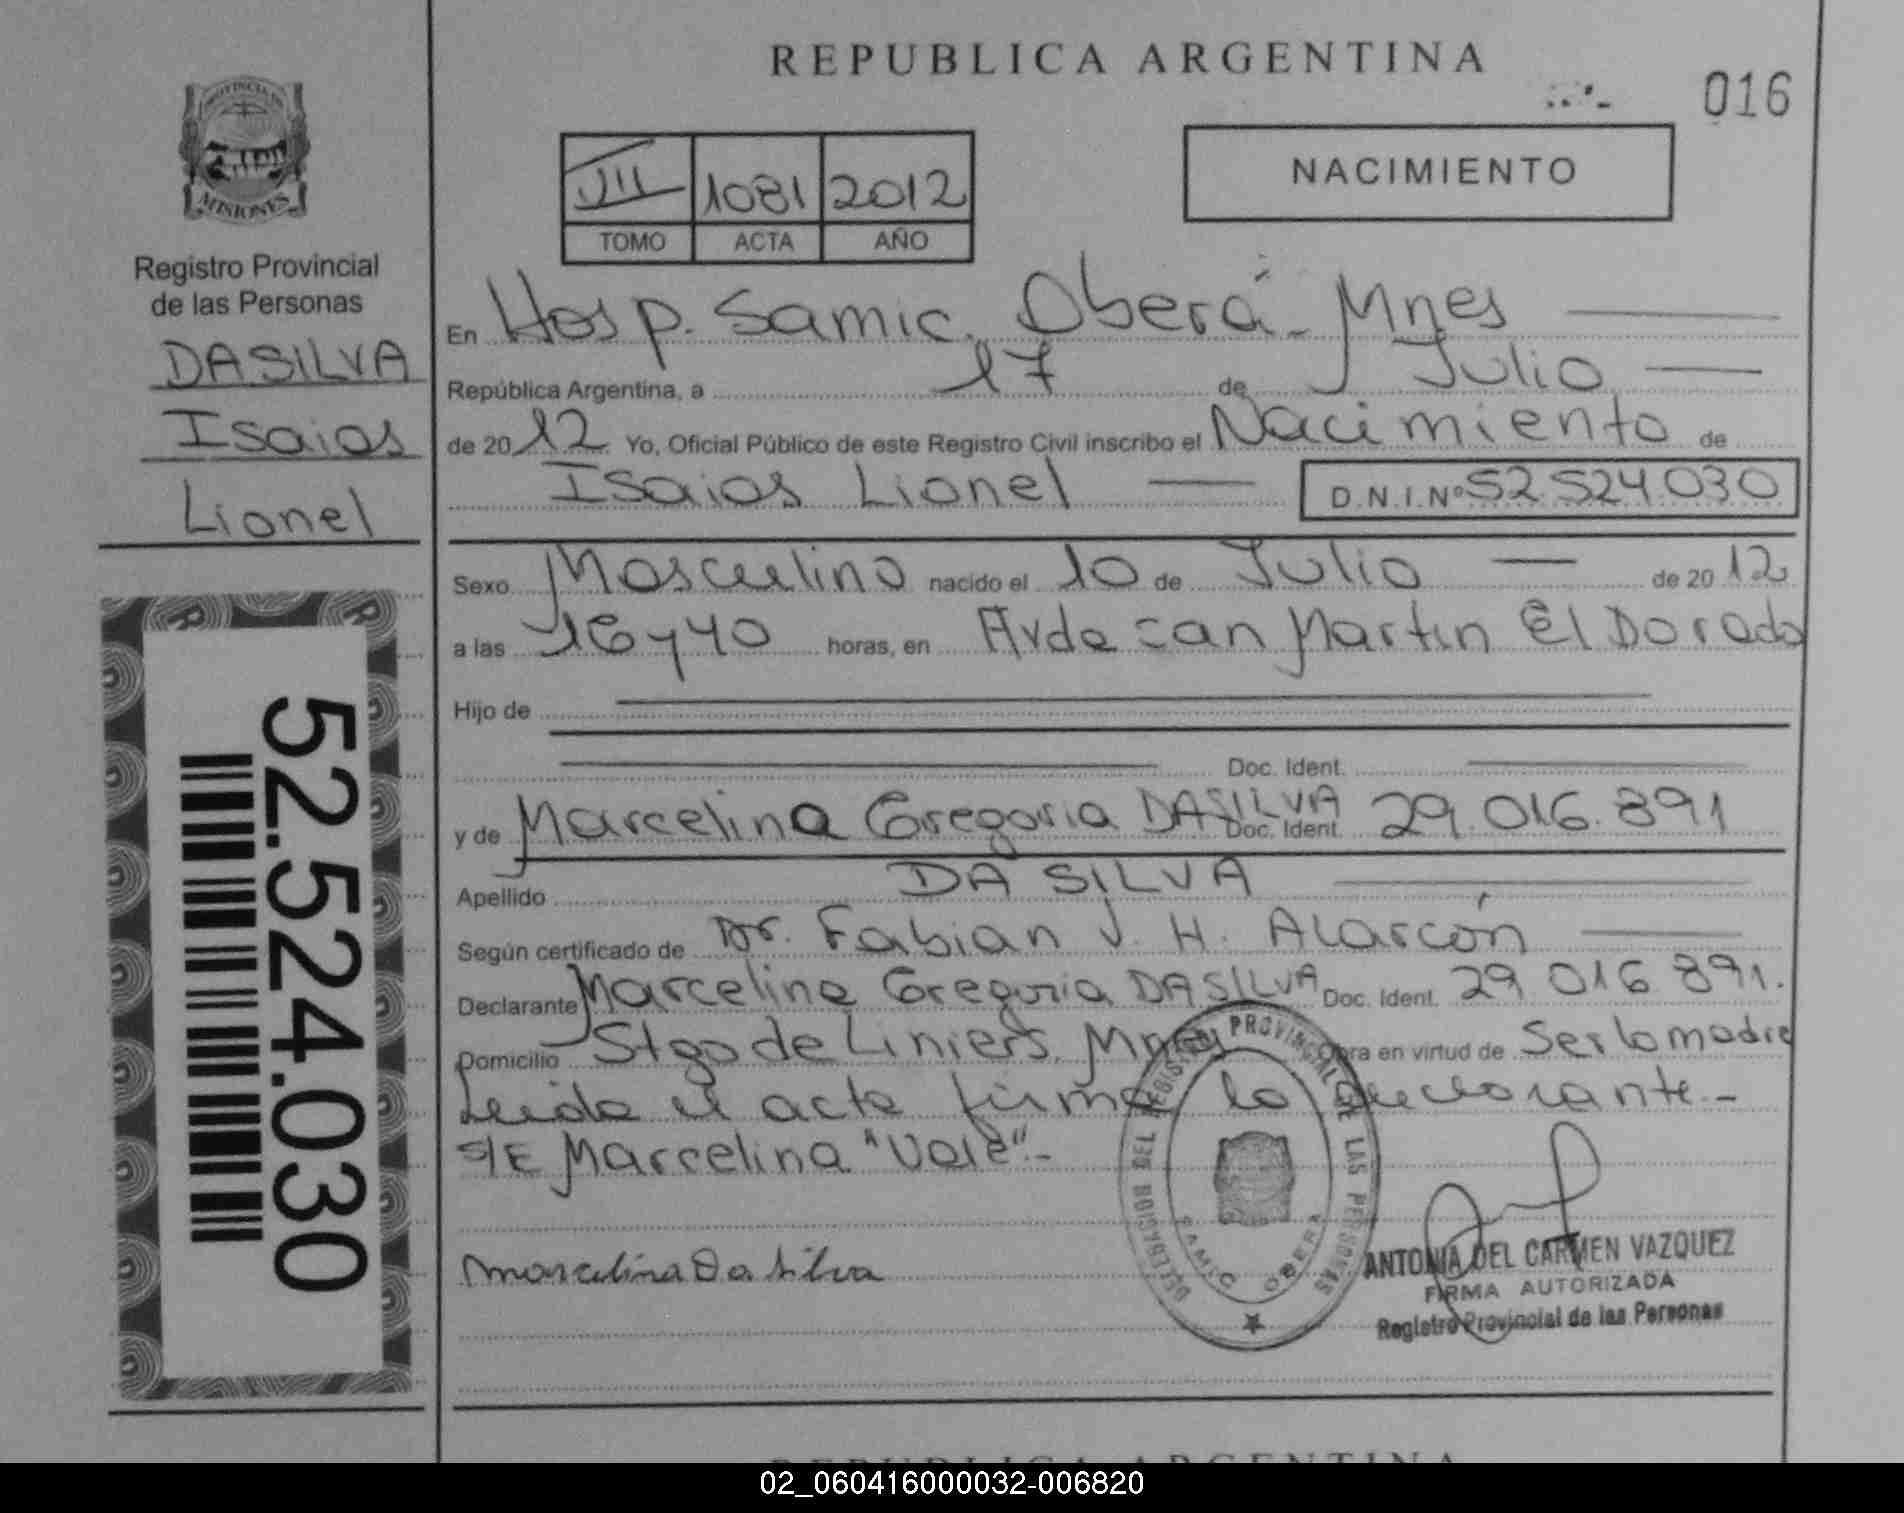 REPUBLICA ARGENTINA
016
PROVINCIA DE
MISIONES
Registro Provincial
de las Personas
DASILVA
Isaias
Lionel
52.524.030
VII 1081 2012
TOMO ACTA AÑO
NACIMIENTO
En Hosp. Samic. Oberá - Mnes
República Argentina, a 17 de Julio
de 2012 Yo, Oficial Público de este Registro Civil inscribo el Nacimiento de
Isaias Lionel D.N.I.Nº 52.524.030
Sexo Masculino nacido el 10 de Julio de 2012
a las 16 y 40 horas, en Avda San Martin El Dorado
Hijo de
Doc. Ident.
y de Marcelina Gregoria DASILVA Doc. Ident. 29.016.891
Apellido DA SILVA
Según certificado de Dr. Fabian J. H. Alarcón
Declarante Marcelina Gregoria DASILVA Doc. Ident. 29 016 891.
Domicilio Stgo de Liniers. Mnes Obra en virtud de Ser la madre
Leida el acta firma la declarante.-
S/E Marcelina "Vale".-
Marcelina Da Silva
DELEGACION DEL REGISTRO PROVINCIAL DE LAS PERSONAS
SAMIC OBERA
ANTONIA DEL CARMEN VAZQUEZ
FIRMA AUTORIZADA
Registro Provincial de las Personas
REPUBLICA ARGENTINA
02_060416000032-006820